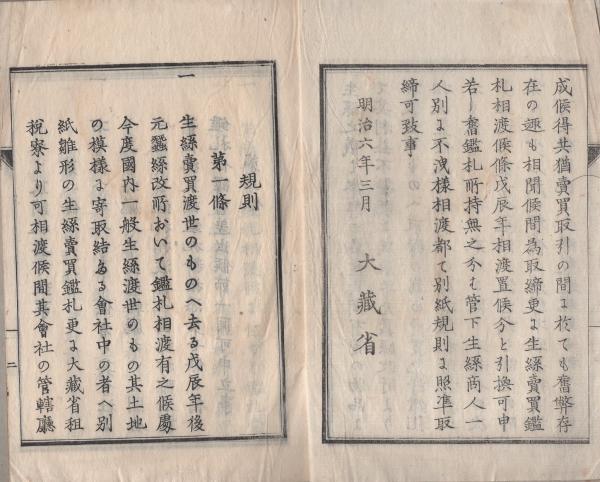 成候得共猶賣買取引の間に於ても舊弊存
在の趣も相聞候間為取締更に生絲賣買鑑
札相渡候條戊辰年相渡置候分と引換可申
若し舊鑑札所持無之分も管下生絲商人一
人別に不洩樣相渡都て別紙規則に照準取
締可致事
明治六年三月
大藏省
規則
第一條
一
生絲賣買渡世のものへ去る戊辰年後
元蠶絲改所おいて鑑札相渡有之候處
今度國内一般生絲渡世のもの其土地
の模樣に寄取結ある會社中の者へ別
紙雛形の生絲賣買鑑札更に大藏省租
稅寮より可相渡候間其會社の管轄廳
二